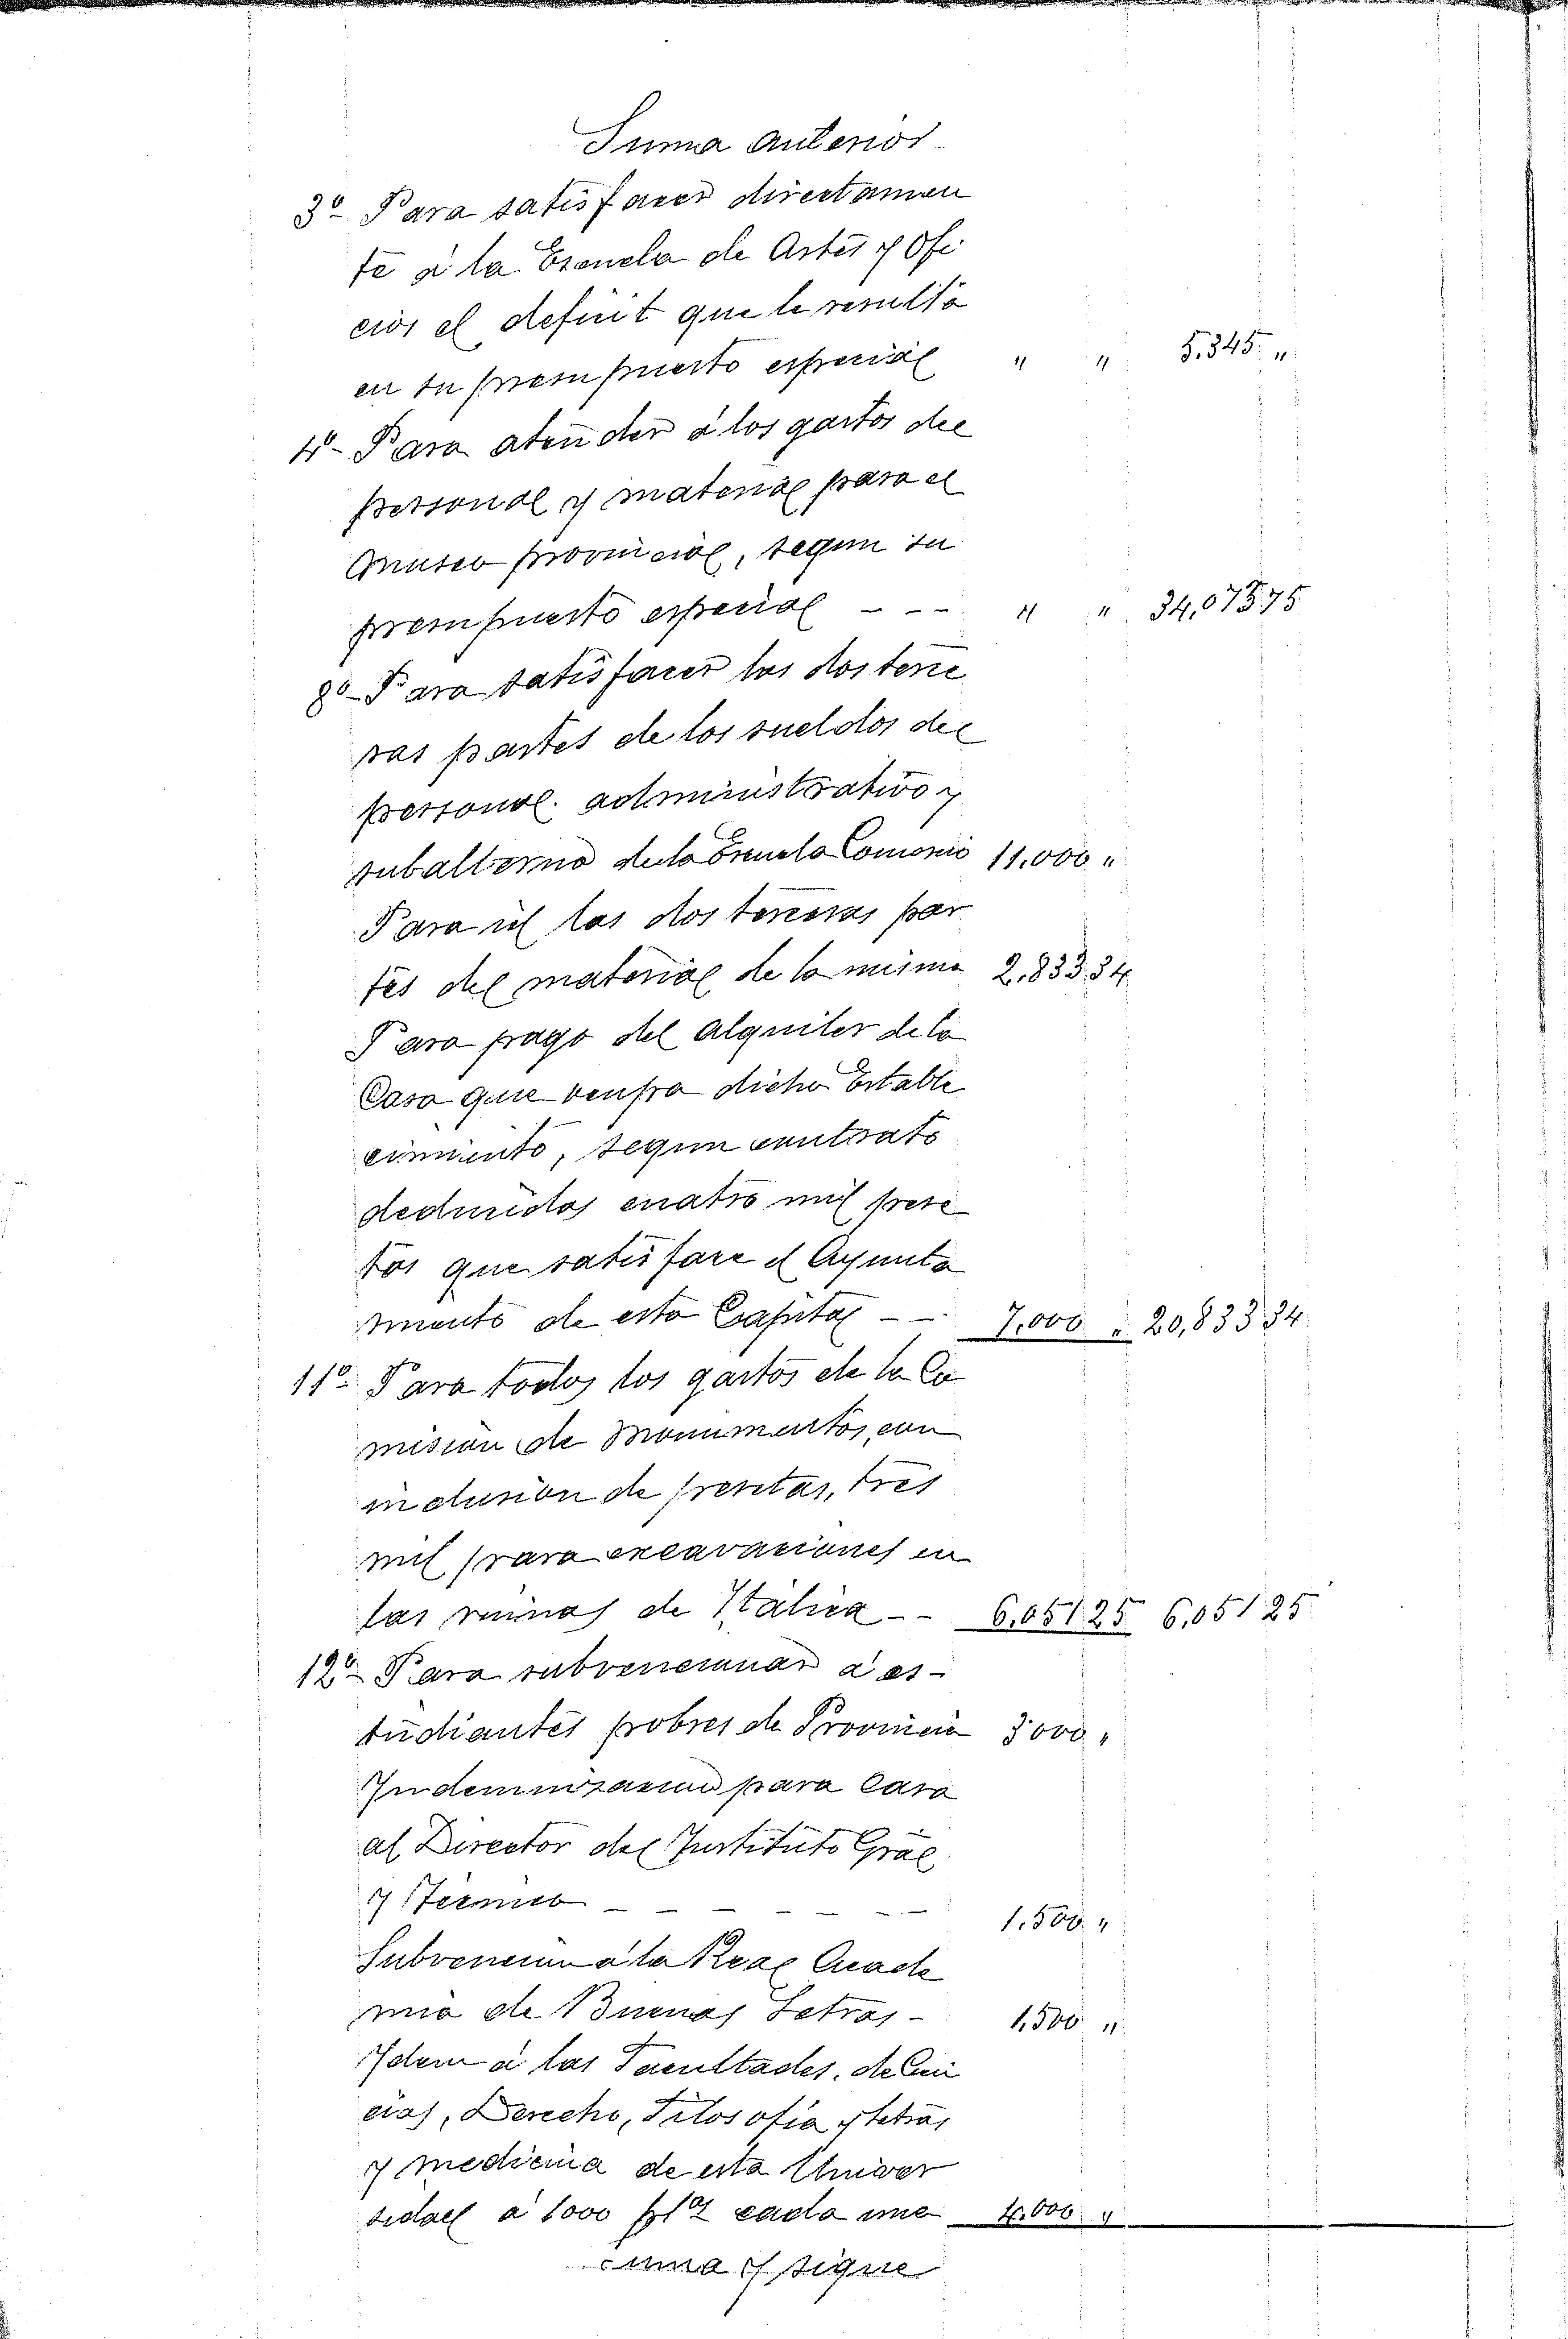 Suma anterior
3º- Para satisfacer directamen
te á la Escuela de Artes y Ofi
cios el deficit que le resulta
en su presupuesto especial " " 5.345 "
4º- Para atender á los gastos del
personal y material para el
Museo provincial, segun su
presupuesto especial - - - " " 34,075 75
8º- Para satisfacer las dos terce
ras partes de los sueldos del
personal administrativo y
subalterno de la Escuela Comercio 11.000 "
Para id las dos terceras par
tes del material de la misma 2,833 34
Para pago del alquiler de la
Casa que ocupa dicho Estable
cimiento, segun contrato
deducidas cuatro mil pese
tas que satisface el Ayunta
miento de esta Capital - - 7,000 " 20,833 34
11º- Para todos los gastos de la Co
mision de Monumentos, con
inclusion de pesetas, tres
mil para excavaciones en
las ruinas de Itálica - - 6,051 25 6,051 25
12º- Para subvencionar á es-
tudiantes pobres de Provincia 3000 "
Indemnizacion para Casa
al Director del Instituto Gral
y Técnico - - - - - - 1.500 "
Subvencion á la Real Acade
mia de Buenas Letras - 1,500 "
Idem á las Facultades, de Cien
cias, Derecho, Filosofía y letras
y medicina de esta Univer
sidad á 1000 ptas cada una 4.000 "
suma y sigue